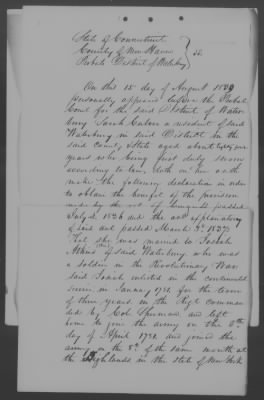 State of Connecticut
County of New Haven } ss.
Probate District of Waterbury
On this 15 day of August 1839
personally appeared before the Probate
Court for the said District of Water
bury Sarah a resident of said
Waterbury in said District in the
said County, & State aged about
years who being first duly sworn
according to law, doth on her oath
make the following declaration in order
to obtain the benefit of the provision
made by the act of Congress passed
July 4 1836 and the act explanatory
of said act passed March 3d 1837.
That she was married to Josiah
Atkins of said Waterbury who was
a soldier in the Revolutionary War
said Josiah enlisted in the continental
service in January 1781 for the term
of three years in the Regt comman
ded by Col Sherman and left
home to join the army on the
day of April 1781 and joined the
army on the 8th of the same month at
the Highlands in the State of New York